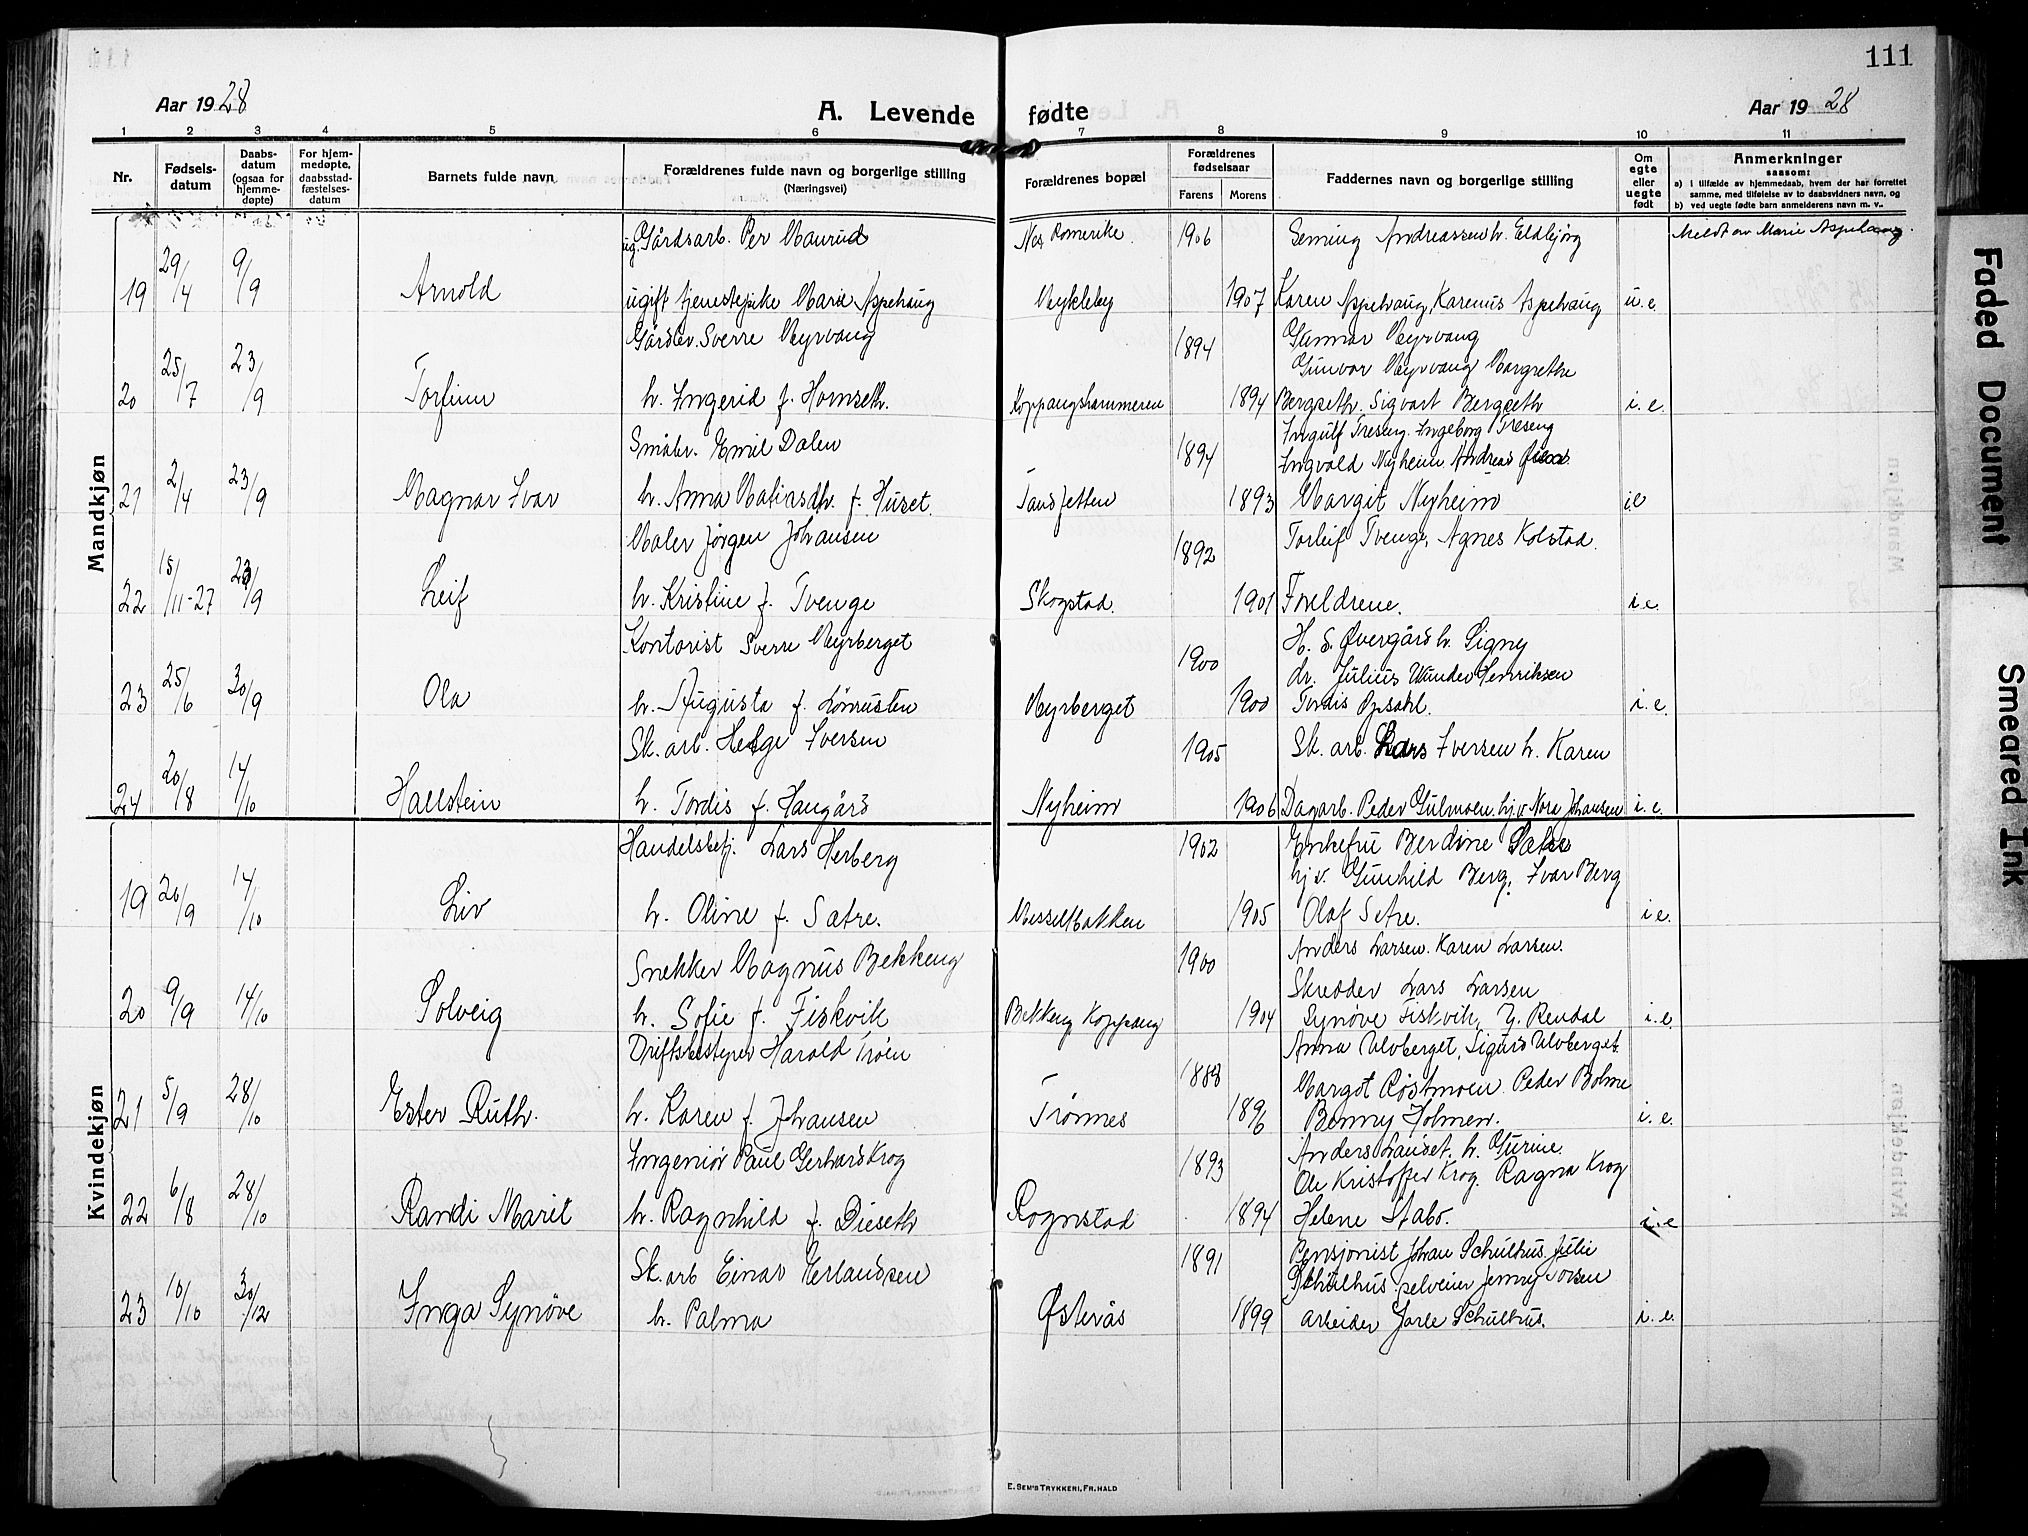 111
Aar 1928
A. Levende fødte
Aar 1928
1 2 3 4 5 6 7 8 9 10 11
Nr.
Fødsels-
datum
Daabs-
datum
(ogsaa for
hjemme-
døpte)
For hjem-
medøpte,
daabsstad-
fæstelses-
datum
Barnets fulde navn
Forældrenes fulde navn og borgerlige stilling
(Næringsvei)
Forældrenes bopæl
Forældrenes
fødselsaar
Farens Morens
Faddernes navn og borgerlige stilling
Om
egte
eller
uegte
født
Anmerkninger
saasom:
a) i tilfælde av hjemmedaab, hvem der har forrettet
samme, med tilføielse av to daabsvidners navn, og
b) ved uegte fødte barn anmelderens navn m. v..
Mandkjøn
ug. Gårdsarb. Per Maurud Nes Romerike 1906 Seming Andreassen h. Eldbjørg Meldt av Marie Aspehaug.
19 29/4 9/9 Arnold ugift tjenestepike Marie Aspehaug Mykleby 1907 Karen Aspehaug, Karenus Aspehaug u. e.
Gårdbr. Sverre Myrvang 1894 Gunnar Myrvang
Gunvor Myrvang Margrethe
20 25/7 23/9 Torfinn h. Ingerid f. Homseth. Koppangskammeren 1894 Bergseth. Sigvart Bergseth i. e.
Småbr. Emil Dalen 1894 Ingulf Treseng. Ingeborg Treseng
Ingvald Nyheim Andreas
21 2/4 23/9 Magnar Ivar h. Anna Matiasdtr. f. Huset. 1893 Margit Nyheim i.e
Maler Jørgen Johansen 1892 Torleif Tvenge, Agnes Kolstad.
22 15/11-27 23/9 Leif h. Kristine f. Tvenge Skogstad. 1901 Foreldrene. i.e.
Kontorist Sverre Myrberget 1900 H. S. Øvergård h. Signy
dr. Julius Wunder Henriksen
23 25/6 30/9 Ola h. Augusta f. Lønrusten Myrberget 1900 Tordis Opsahl. i. e.
Sk. arb. Helge Iversen 1905 Sk. arb. Lars Iversen h. Karen
24 20/8 14/10 Hallstein h. Tordis f. Haugård Nyheim 1906 Dagarb. Peder Gulmoen hj.v. Nora Johansen i. e.
Kvindekjøn
Handelsbetj. Lars Herberg 1902 Enkefru Berdine Sætre
hj v. Gunhild Berg, Ivar Berg
19 20/9 14/10 Liv h. Oline f. Sætre. Messeltbakken 1905 Olaf Setre. i e.
Snekker Magnus Bekkeng 1900 Anders Larsen. Karen Larsen.
Skredder Lars Larsen
20 9/9 14/10 Solveig h. Sofie f. Fiskvik Bekkeng Koppang 1904 Synøve Fiskvik, Y. Rendal i. e.
Driftsbestyrer Harald Trøen 1888 Anna Ulvberget, Sigurd Ulvberget.
Margot Røstmoen Peder Bolme
21 5/9 28/10 Ester Ruth. h. Karen f. Johansen Trønnes 1896 Benny Holmen. i. e.
Ingeniør Paul Gerhard Krog 1893 Anders Landet. h. Gurine.
Ole Kristoffer Krog. Ragna Krog
22 6/8 28/10 Randi Marit h. Ragnhild f. Dieseth Rognstad 1894 Helene Stabo. i. e
Sk. arb Einar Erlandsen 1891 Pensjonist Johan Schulhus. Julie
Schulhus. selveier Jenny Torsen
23 10/10 30/12 Inga Synøve h. Palma Østerås 1899 arbeider Jarle Schulhus. i. e.
E. SEM'S TRYKKERI, FR.HALD
Faded Document
Smeared Ink